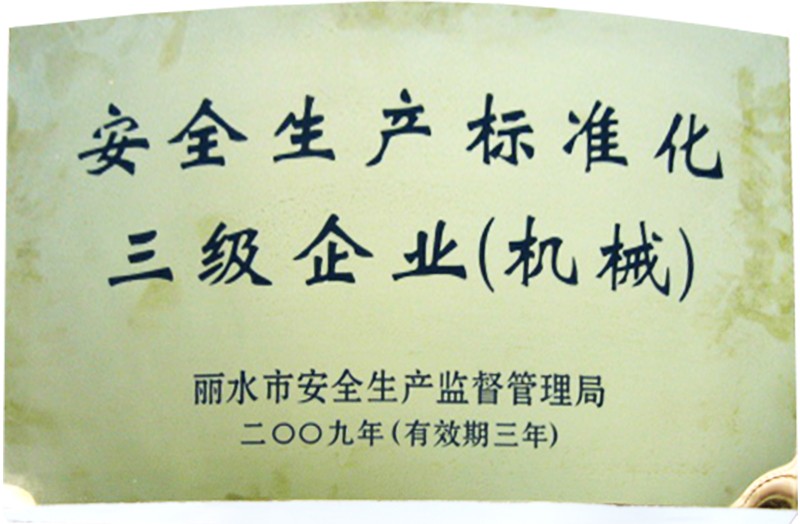 安全生产标准化
三级企业(机械)
丽水市安全生产监督管理局
二〇〇九年(有效期三年)